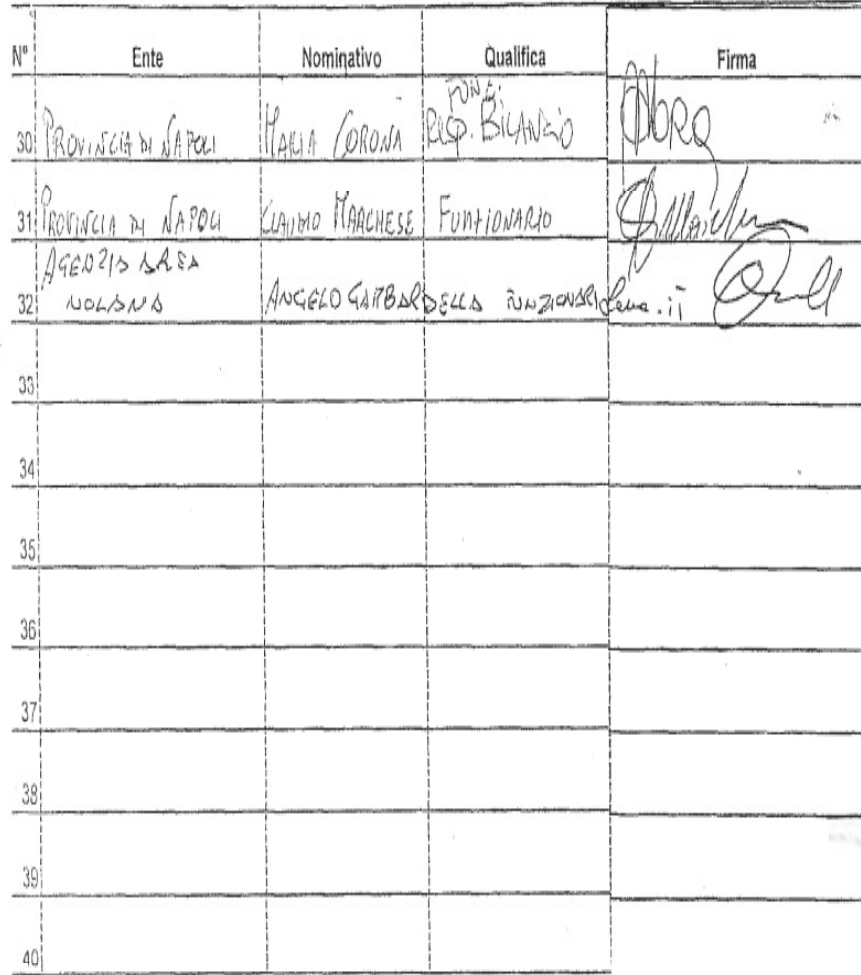 N° Ente Nominativo Qualifica Firma
FUNZ.
30 PROVINCIA DI NAPOLI MARIA CORONA RESP. BILANCIO
31 PROVINCIA DI NAPOLI CLAUDIO MARCHESE FUNZIONARIO
AGENZIA AREA
32 NOLANA ANGELO GAMBARDELLA FUNZIONARI
33
34
35
36
37
38
39
40